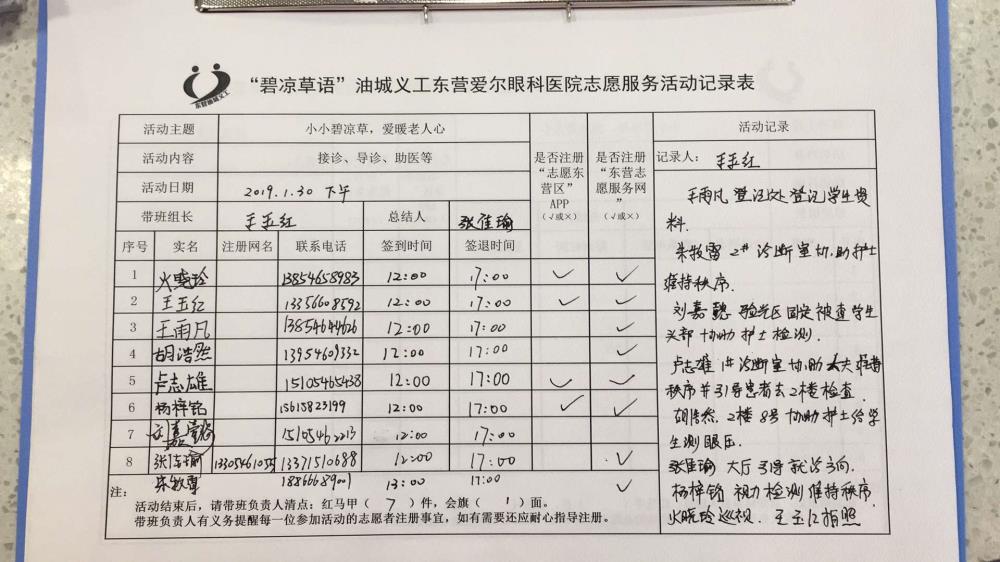 东营油城义工
“碧凉草语”油城义工东营爱尔眼科医院志愿服务活动记录表
活动主题 小小碧凉草，爱暖老人心
活动内容 接诊、导诊、助医等
活动日期 2019.1.30 下午
带班组长 王玉红 总结人 张佳瑜
序号 实名 注册网名 联系电话 签到时间 签退时间
是否注册“志愿东营区”APP（√或×）
是否注册“东营志愿服务网”（√或×）
1 火晓玲 13854658983 12:00 17:00 ✓ ✓
2 王玉红 13356608592 12:00 17:00 ✓ ✓
3 王雨凡 13854644626 12:00 17:00 ✓
4 胡浩然 13954609332 12:00 17:00 ✓
5 卢志雄 15105465438 12:00 17:00 ✓ ✓
6 杨梓铭 15615823199 12:00 17:00 ✓ ✓
7 15105462213 12:00 17:00
8 张佳瑜 13371510688 12:00 17:00 ✓
朱牧雷 18866689001 13:00 17:00 ✓
注：
活动结束后，请带班负责人清点：红马甲（ 7 ）件，会旗（ 1 ）面。
带班负责人有义务提醒每一位参加活动的志愿者注册事宜，如有需要还应耐心指导注册。
活动记录
记录人： 王玉红
王雨凡 登记处登记学生资
料.
朱牧雷 2# 诊断室协助护士
维持秩序.
刘嘉懿 验光区固定被查学生
头部 协助护士检测.
卢志雄 1#诊断室协助大夫
秩序并引导患者去2楼检查.
胡浩然. 2楼 8号 协助护士给学
生测眼压.
张佳瑜 大厅 引导就诊方向.
杨梓铭 视力检测 维持秩序
火晓玲巡视. 王玉红拍照